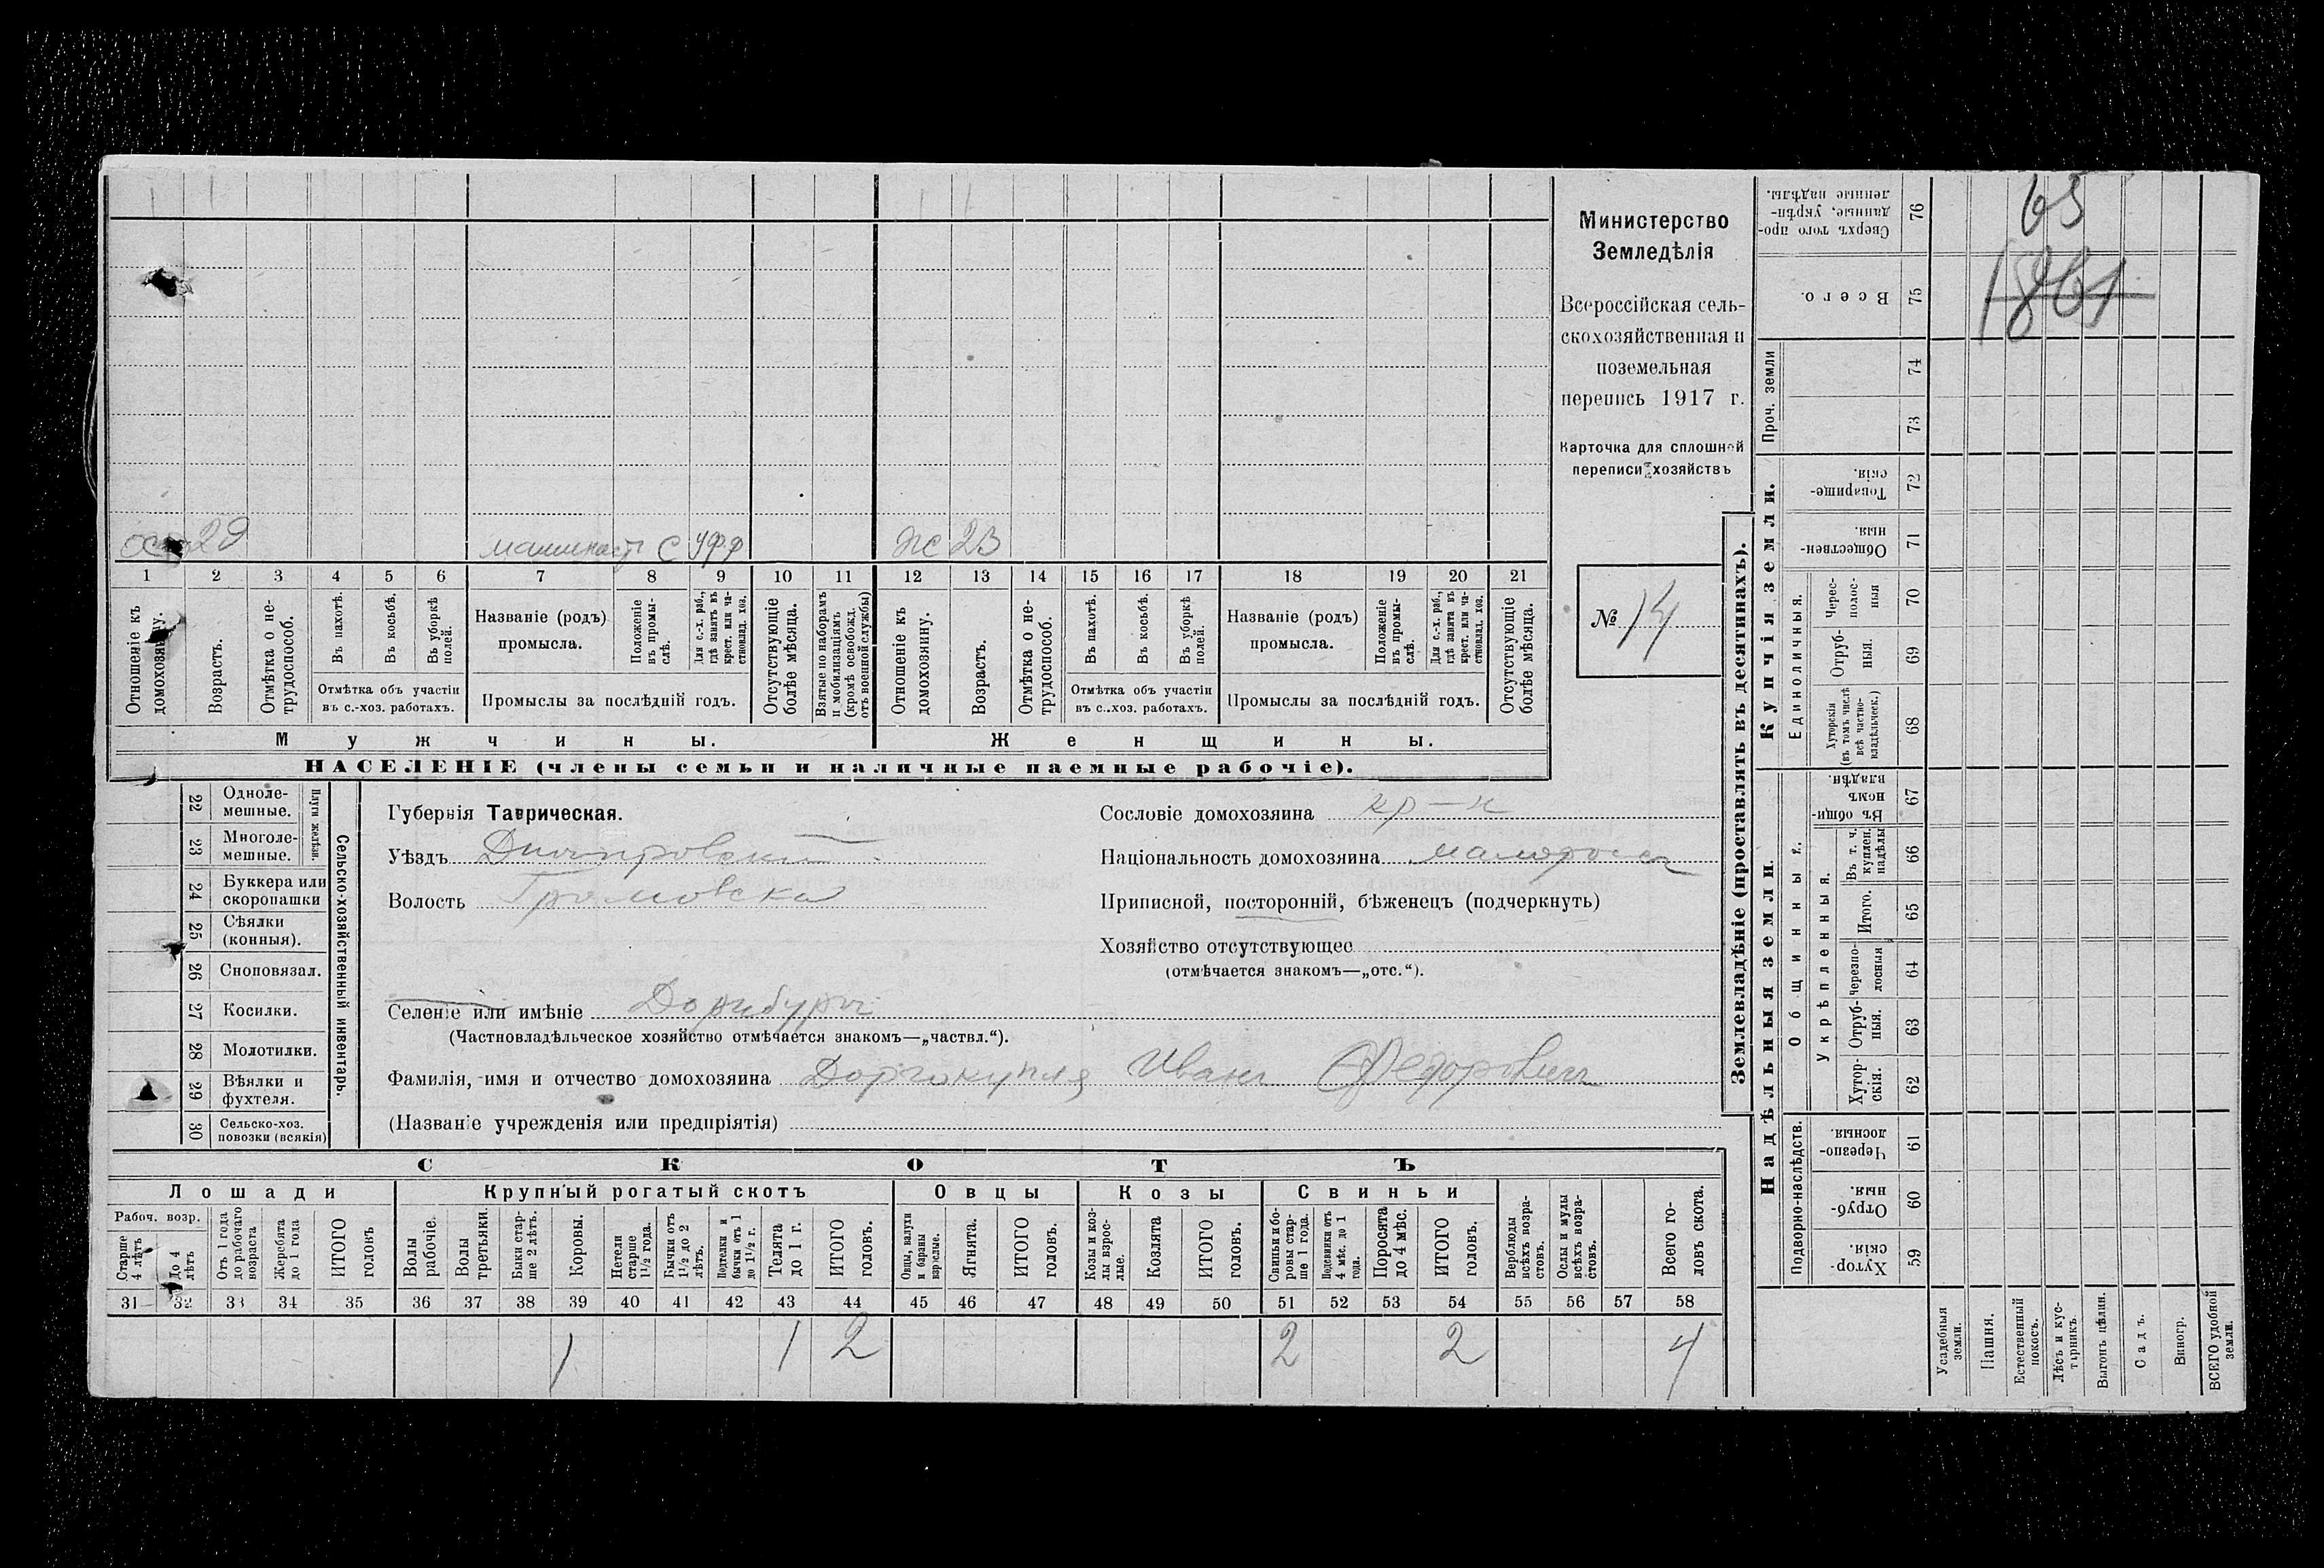 65
1861
Министерство
Земледѣлія
Всероссійская сель-
скохозяйственная и
поземельная
перепись 1917 г.
Карточка для сплошной
переписи хозяйствъ
№ 14
29 машинист С УФФ ж 23
1 2 3 4 5 6 7 8 9 10 11 12 13 14 15 16 17 18 19 20 21
Отношеніе къ домохозяину.
Возрастъ.
Отмѣтка о не-трудоспособ.
Въ пахотѣ.
Въ косьбѣ.
Въ уборкѣ полей.
Отмѣтка объ участіи
въ с.-хоз. работахъ.
Названіе (родъ)
промысла.
Положеніе въ промы-слѣ.
Для с.-х. раб., гдѣ занятъ въ крест. или ча-стновлад. хоз.
Промыслы за послѣдній годъ.
Отсутствующіе болѣе мѣсяца.
Взятые по наборамъ и мобилизаціямъ (кромѣ освобожд. отъ военной службы)
Отношеніе къ домохозяину.
Возрастъ.
Отмѣтка о не-трудоспособ.
Въ пахотѣ.
Въ косьбѣ.
Въ уборкѣ полей.
Отмѣтка объ участіи
въ с.-хоз. работахъ.
Названіе (родъ)
промысла.
Положеніе въ промы-слѣ.
Для с.-х. раб., гдѣ занята въ крест. или ча-стновлад. хоз.
Промыслы за послѣдній годъ.
Отсутствующіе болѣе мѣсяца.
Мужчины. Женщины.
НАСЕЛЕНІЕ (члены семьи и наличные наемные рабочіе).
22 Одноле-мешные.
23 Многоле-мешные.
Плуги желѣзн.
24 Буккера или скоропашки
25 Сѣялки (конныя).
26 Сноповязал.
27 Косилки.
28 Молотилки.
29 Вѣялки и фухтеля.
30 Сельско-хоз. повозки (всякія)
Сельско-хозяйственный инвентарь.
Губернія Таврическая.
Уѣздъ Днѣпровскій
Волость Громовска
Селеніе или имѣніе
(Частновладѣльческое хозяйство отмѣчается знакомъ—„частвл.“).
Фамилія, имя и отчество домохозяина Иванъ Федоровичъ
(Названіе учрежденія или предпріятія)
Сословіе домохозяина кр-н
Національность домохозяина малоросъ
Приписной, посторонній, бѣженецъ (подчеркнуть)
Хозяйство отсутствующее
(отмѣчается знакомъ—„отс.“).
СКОТЪ
Лошади Крупный рогатый скотъ Овцы Козы Свиньи
Рабоч. возр.
Старше 4 лѣтъ
До 4 лѣтъ
Отъ 1 года до рабочаго возраста
Жеребята до 1 года
ИТОГО головъ
Волы рабочіе.
Волы третьяки.
Быки стар-ше 2 лѣтъ.
Коровы.
Нетели старше 1½ года.
Бычки отъ 1½ до 2 лѣтъ.
Подтелки и бычки отъ 1 до 1½ г.
Телята до 1 г.
ИТОГО головъ.
Овцы, валухи и бараны взрослые.
Ягнята.
ИТОГО головъ.
Козы и коз-лы взрос-лые.
Козлята
ИТОГО головъ.
Свиньи и бо-ровы стар-ше 1 года.
Подсвинки отъ 4 мѣс. до 1 года.
Поросята до 4 мѣс.
ИТОГО головъ.
Верблюды всѣхъ возра-стовъ.
Ослы и мулы всѣхъ возра-стовъ.
Всего го-ловъ скота.
31 32 33 34 35 36 37 38 39 40 41 42 43 44 45 46 47 48 49 50 51 52 53 54 55 56 57 58
1 1 2 2 2 4
Землевладѣніе (проставлять въ десятинахъ).
Надѣльныя земли. Купчія земли.
Подворно-наслѣдств.
Общинныя.
Укрѣпленныя.
Единоличныя.
Проч. земли
76 Сверхъ того про-данные, укрѣп-ленные надѣлы.
75 Всего.
74
73
72 Товарище-скія.
71 Обществен-ныя.
70 Черес-полос-ныя
69 Отруб-ныя.
68 Хуторскія (въ томъ числѣ всѣ частно-владѣльческ.)
67 Въ общи-номъ владѣн.
66 Въ т. ч. куплен. надѣлы
65 Итого.
64 Черезпо-лосныя
63 Отруб-ныя.
62 Хутор-скія.
61 Черезпо-лосныя.
60 Отруб-ныя.
59 Хутор-скія.
Усадебныя земли.
Пашня.
Естественный покосъ.
Лѣсъ и кус-тарникъ.
Выгонъ цѣлин.
Садъ.
Виногр.
ВСЕГО удобной земли.